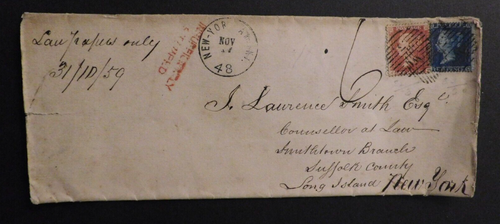 Law papers only
31/10/59
NEW-YORK
NOV
48
INSUFFICIENTLY
STAMPED
J. Lawrence Smith Esqre
Counsellor at Law
Smithtown Branch
Suffolk County
Long Island New York